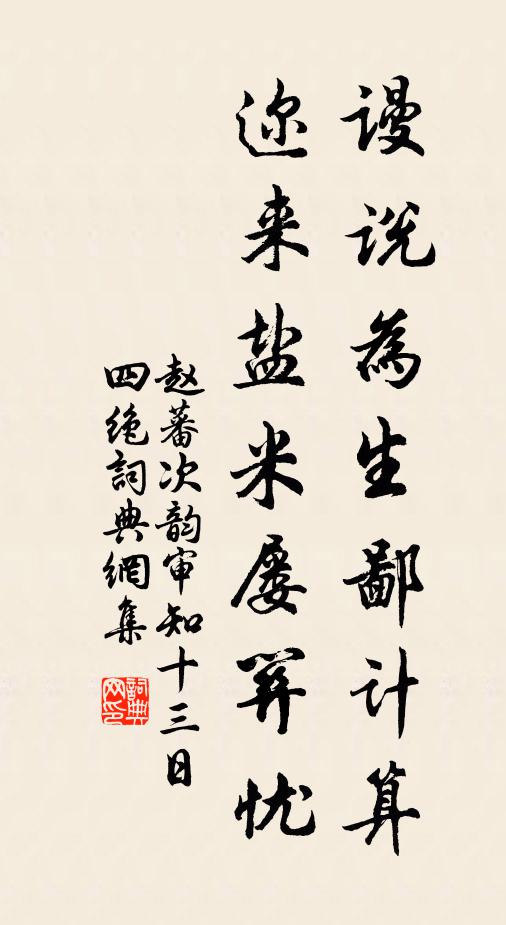 谩说為生鄙计算
迩来盐米屡關忧
赵蕃次韵审知十三日
四绝詞典網集
詞典
网印